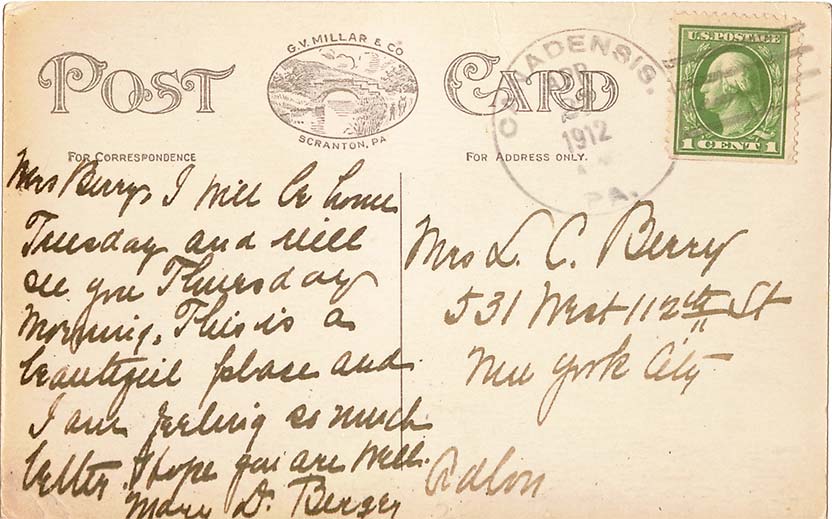 POST CARD
G.V. MILLAR & CO
SCRANTON, PA
FOR CORRESPONDENCE
FOR ADDRESS ONLY.
CANADENSIS.
APR
1912
PA.
U.S. POSTAGE
1 CENT 1
Mrs Berry, I will be home
Tuesday and will
see you Thursday
Morning. This is a
beautiful place and
I am feeling so much
better. I hope you are well.
Mary D.
Mrs L. C. Berry
531 West 112th St
New York City